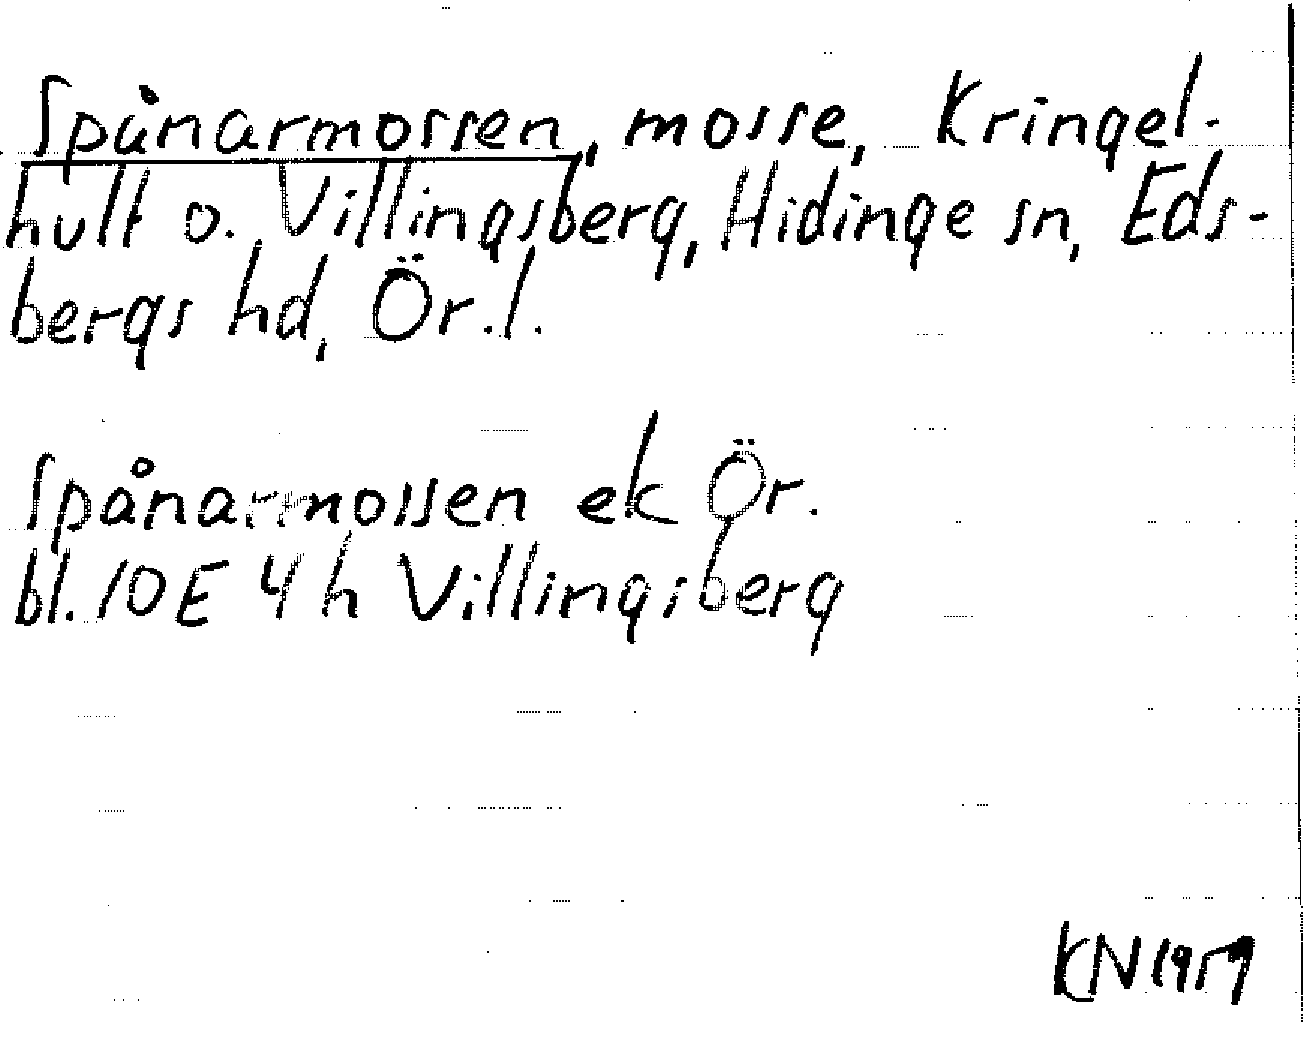 Spånarmossen, mosse, Kringel-
hult o. Villingsberg, Hidinge sn, Eds-
bergs hd, Ör. l.
Spånarmossen ek Ör.
bl. 10E 4h Villingsberg
KN